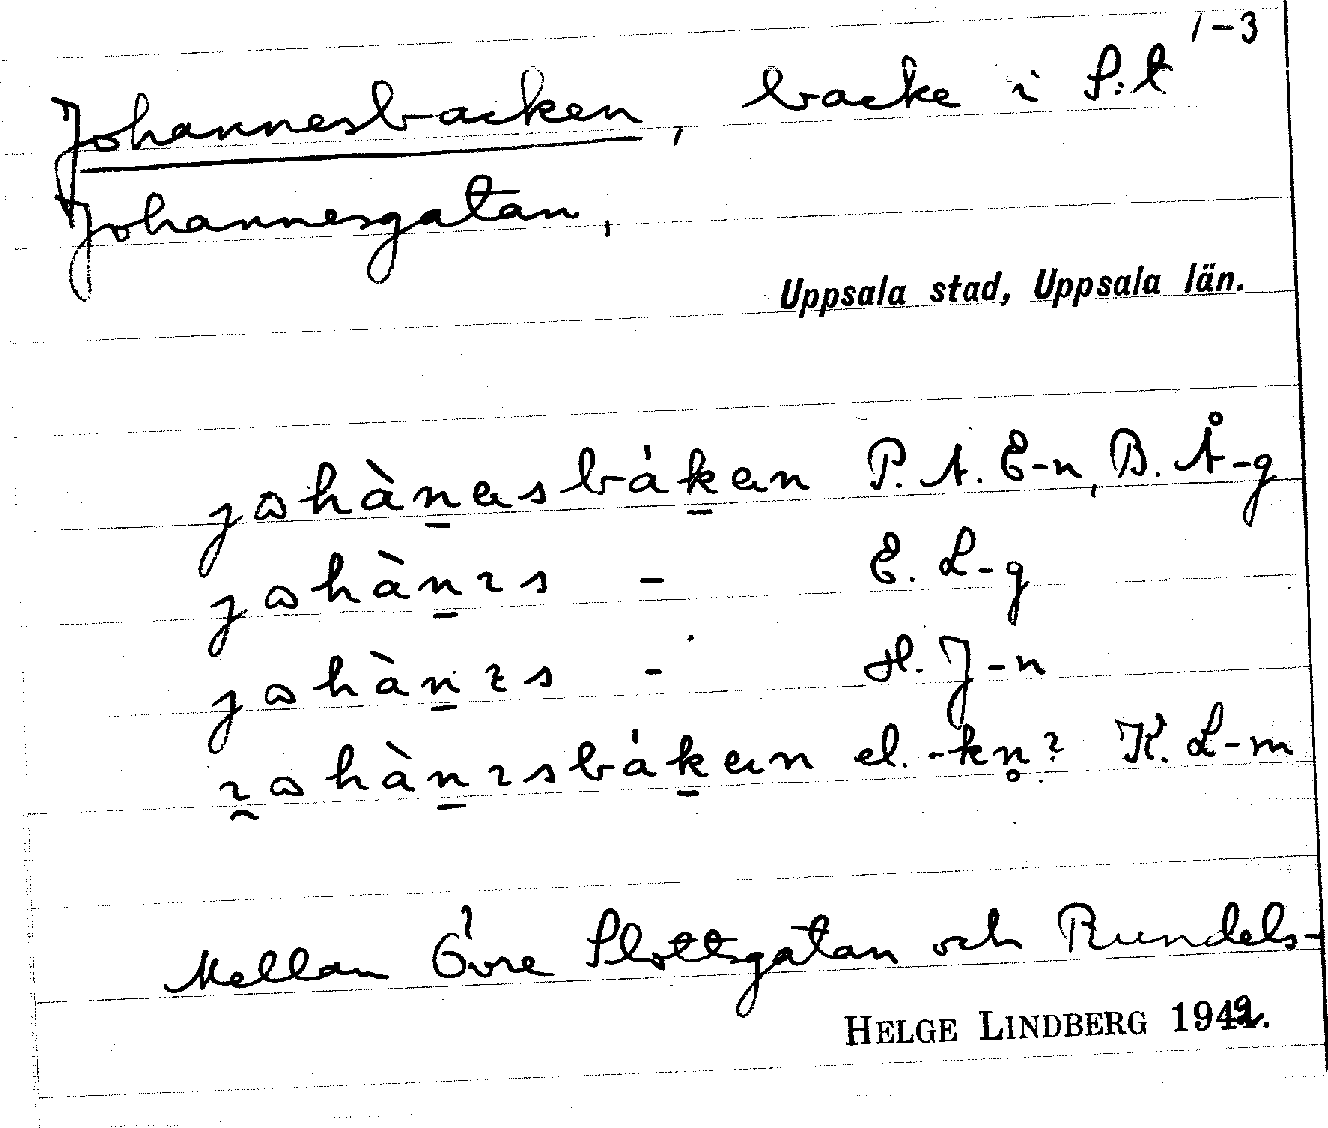 1-3
Johannesbacken, backe i S:t
Johannesgatan,
Uppsala stad, Uppsala län.
jɷhàn̠esbák̠en P. A. E-n, B. Å-g
jɷhàn̠ɿs - E. L-g
jɷhàn̠ꞇs - H. J-n
ɿ̯ɷhàn̠ɿsbák̠en el. -kn̥? K. L-m
Mellan Övre Slottsgatan och Rundels-
HELGE LINDBERG 1942.